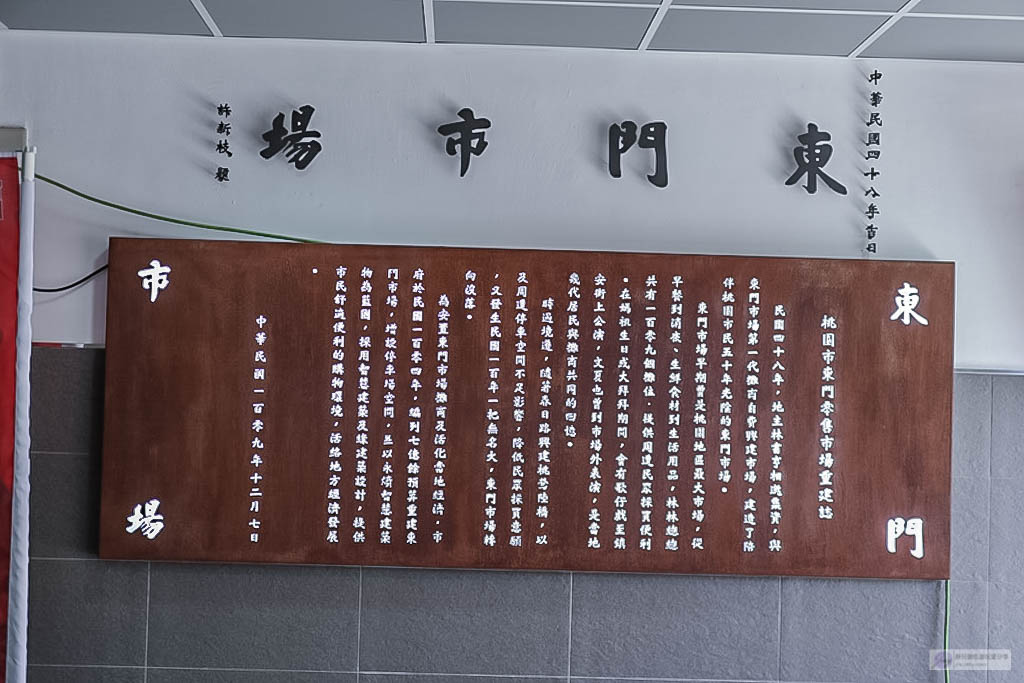 中華民國四十八年吉日
東門市場
許新枝 題
東門
市場
桃園市東門零售市場重建誌
民國四十八年，地主林書亨相邀蓋資，與
東門市場第一代攤商自費興建市場，建造了陪
伴桃園市民五十年光陰的東門市場。
東門市場早期曾是桃園地區最大市場，從
早餐到消夜、生鮮食材到生活用品，林林總總
共有一百零九個攤位，提供周邊民眾採買便利
。在媽祖生日或大拜拜期間，會有歌仔戲至鎮
安街上公演，文夏也曾到市場外表演，是當地
幾代居民與攤商共同的回憶。
時過境遷，隨著春日路興建桃鶯陸橋，以
及周邊停車空間不足影響，降低民眾採買意願
，又發生民國一百年一把無名火，東門市場轉
向沒落。
為安置東門市場攤商及活化當地經濟，市
府於民國一百零四年，編列七億餘預算重建東
門市場，增設停車場空間，並以永續智慧建築
物為藍圖，採用智慧建築及綠建築設計，提供
市民舒適便利的購物環境，活絡地方經濟發展
。
中華民國一百零九年十二月七日